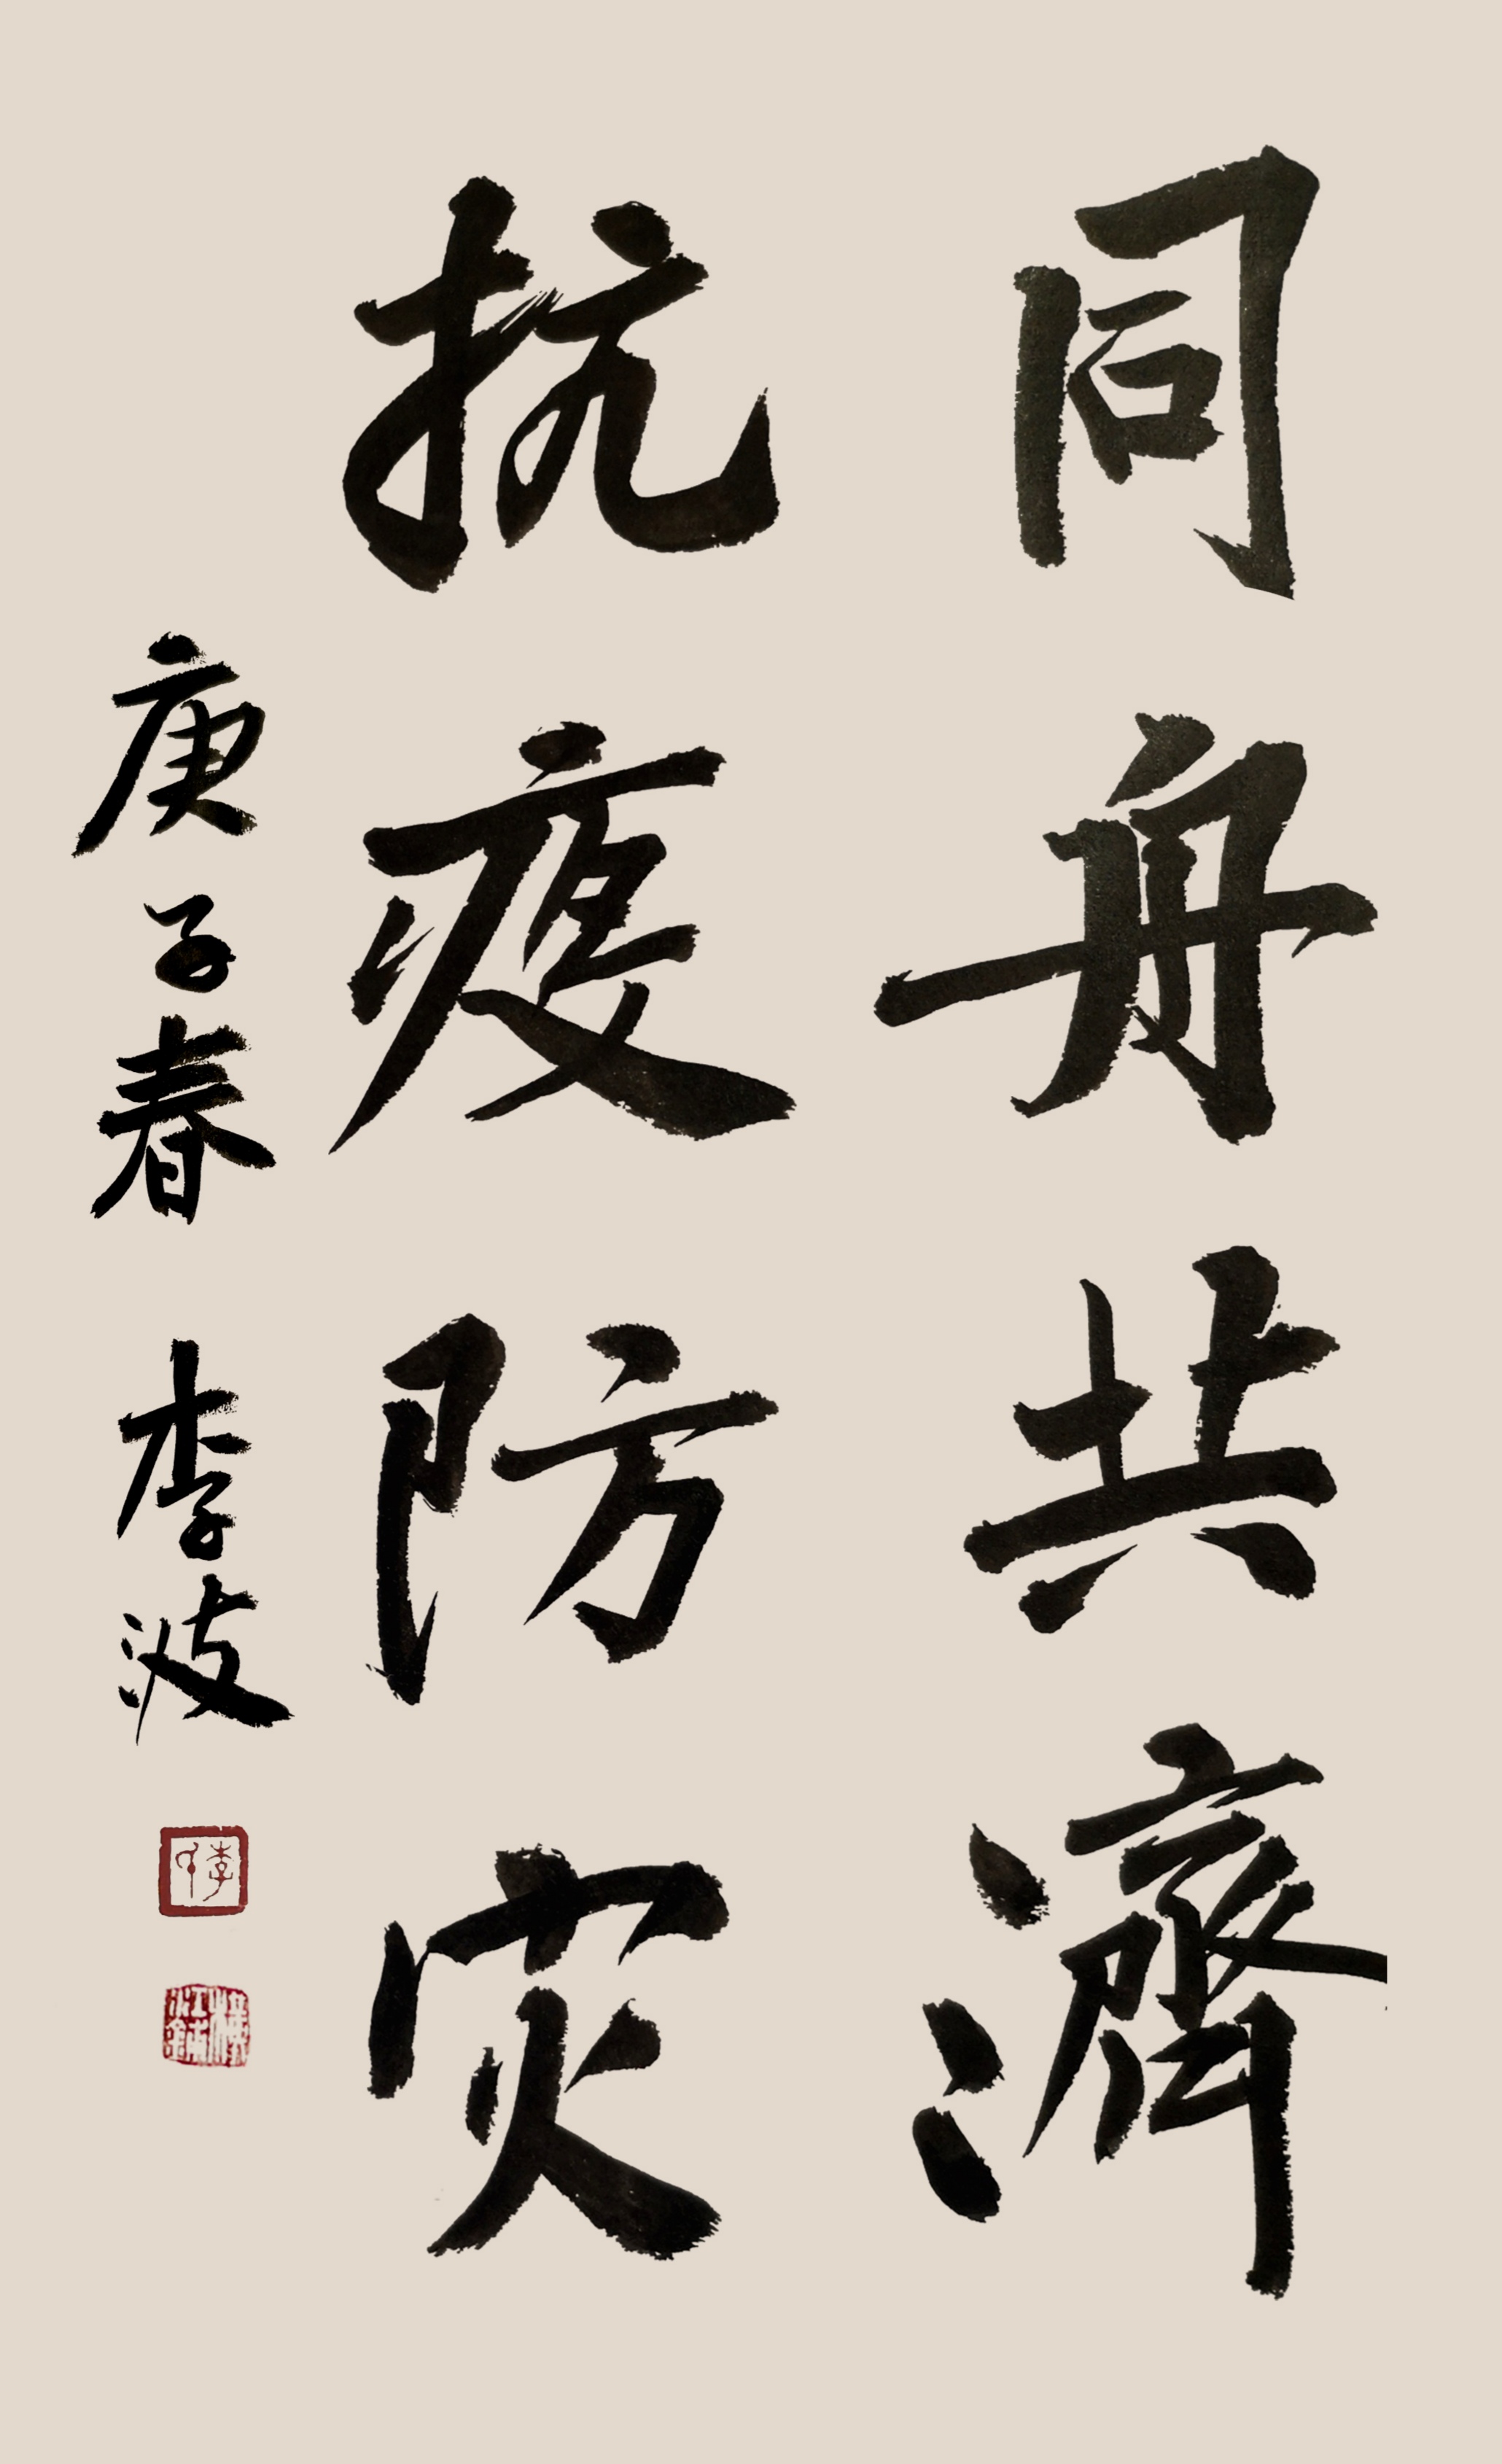 同舟共濟
抗疫防灾
庚子春 李波